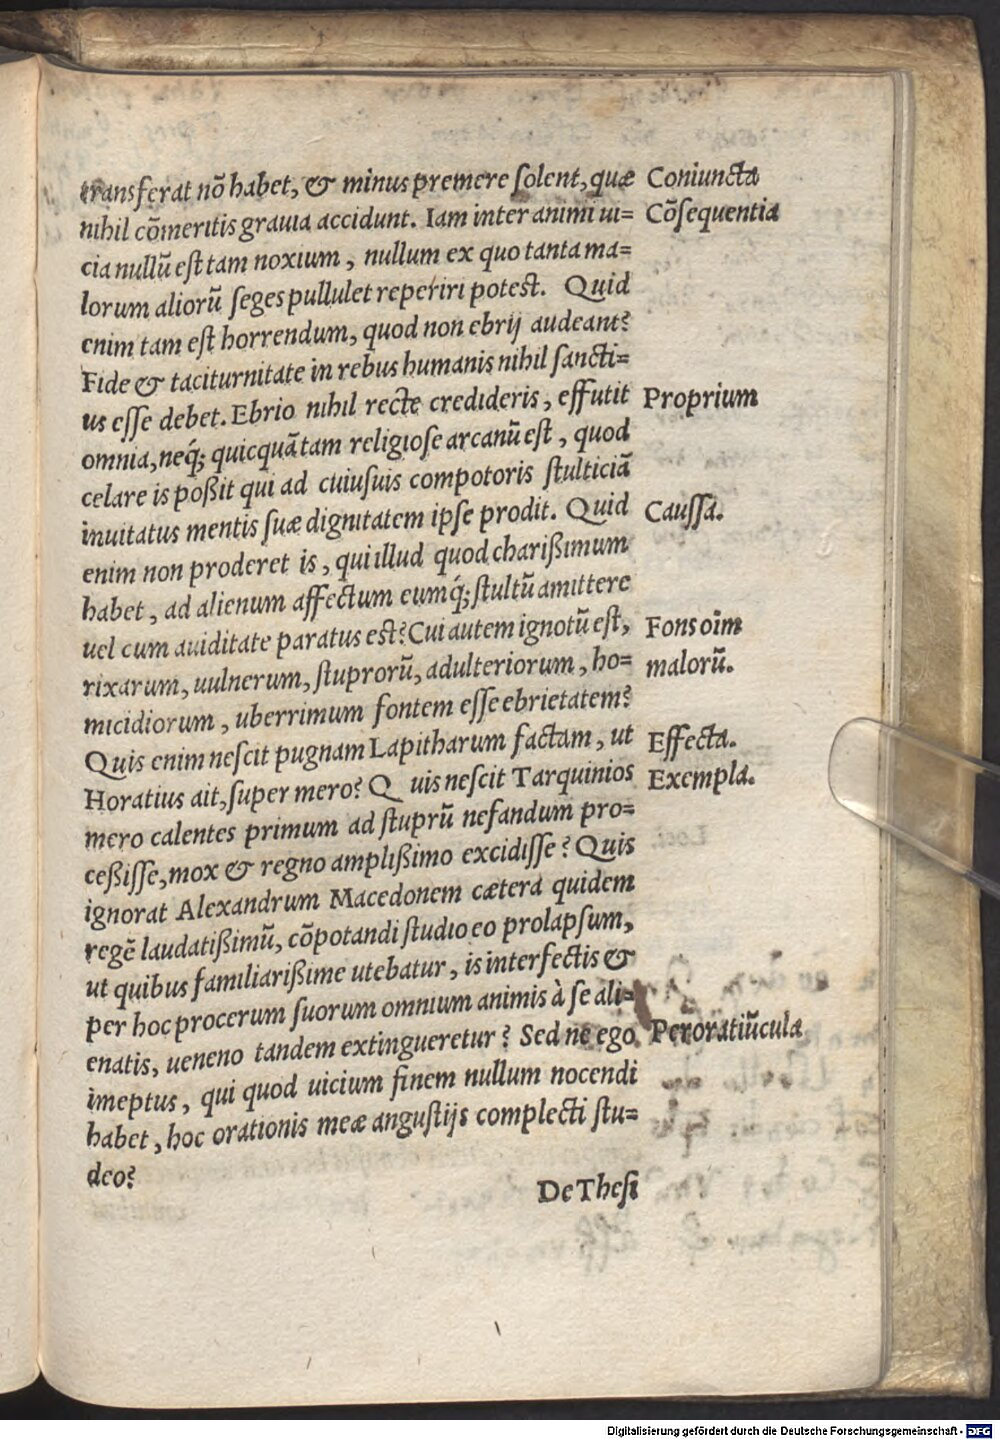 transferat nõ habet, & minus premere ſolent, quæ Coniuncta
nihil cõmeritis grauia accidunt. Iam inter animi ui= Cõſequentia
cia nullũ eſt tam noxium, nullum ex quo tanta ma=
lorum aliorũ ſeges pullulet reperiri potest. Quid
enim tam eſt horrendum, quod non ebrij audeant?
Fide & taciturnitate in rebus humanis nihil ſancti=
us eſſe debet. Ebrio nihil recte credideris, effutit Proprium
omnia, neq́; quicquã tam religioſe arcanũ eſt, quod
celare is poßit qui ad cuiuſuis compotoris ſtulticiã
inuitatus mentis ſuæ dignitatem ipſe prodit. Quid Cauſſa.
enim non proderet is, qui illud quod charißimum
habet, ad alienum affectum eumq́; ſtultũ amittere
uel cum auiditate paratus est? Cui autem ignotũ eſt, Fons oĩm
rixarum, uulnerum, ſtuprorũ, adulteriorum, ho= malorũ.
micidiorum, uberrimum fontem eſſe ebrietatem?
Quis enim neſcit pugnam Lapitharum factam, ut Effecta.
Horatius ait, ſuper mero? Q uis neſcit Tarquinios Exempla.
mero calentes primum ad ſtuprũ nefandum pro=
ceßiſſe, mox & regno amplißimo excidiſſe? Quis
ignorat Alexandrum Macedonem cætera quidem
regẽ laudatißimũ, cõpotandi ſtudio eo prolapſum,
ut quibus familiarißime utebatur, is interfectis &
per hoc procerum ſuorum omnium animis à ſe ali=
enatis, ueneno tandem extingueretur? Sed ne ego Peroratiũcula
imeptus, qui quod uicium finem nullum nocendi
habet, hoc orationis meæ anguſtijs complecti ſtu=
deo?
De Theſi
Digitalisierung gefördert durch die Deutsche Forschungsgemeinschaft - DFG